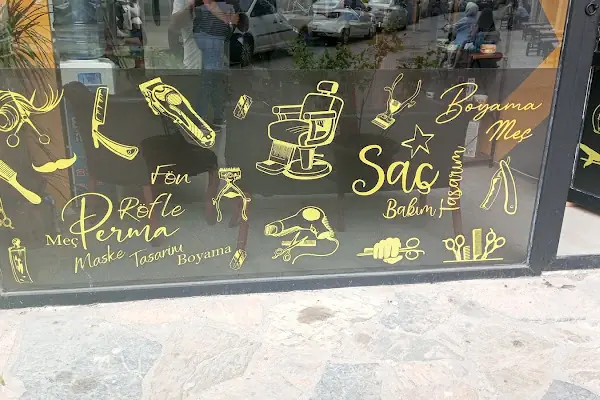 Fön
Röfle
Perma
Meç
Maske
Tasarım
Boyama
Saç
Bakım
Tasarım
Boyama
Meç